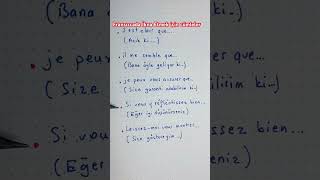 Fransızcada İkna Etmek için cümleler
C'est clair que...
(Açık ki...)
Il me semble que...
(Bana öyle geliyor ki...)
je peux vous assurer que...
(Size garanti edebilirim ki...)
Si vous y réfléchissez bien...
(Eğer iyi düşünürseniz)
Laissez-moi vous montrer...
(Size göstereyim...)
(Bana
je peux
(Size
ilirim ki...)
Si vous
ssez bien...
(Eğer
eniz)